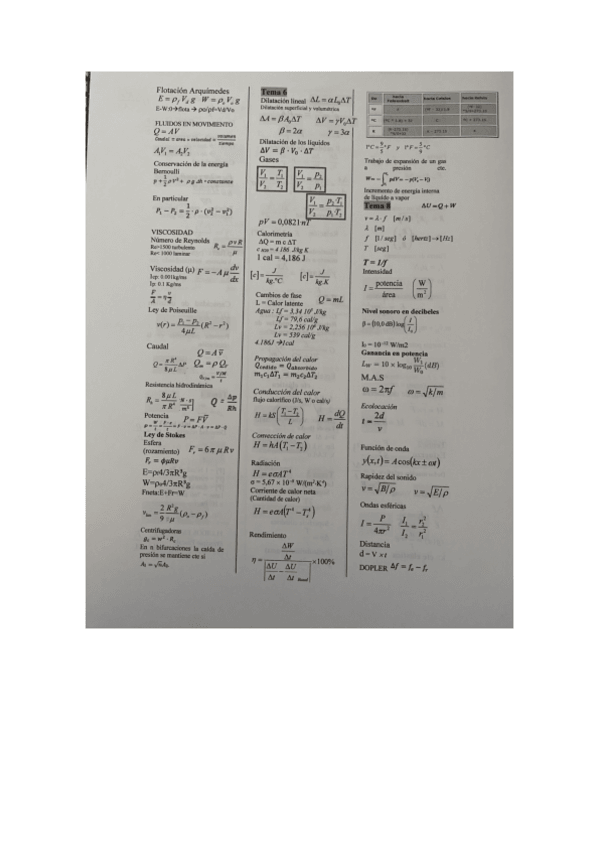 Flotación Arquímedes
E = ρ_f V_d g   W = ρ_c V_c g
E-W:0→flota → ρo/ρf=Vd/Vo
FLUIDOS EN MOVIMIENTO
Q = AV
Caudal = area × velocidad =
A₁V₁ = A₂V₂
Conservación de la energía
Bernoulli
p + 1/2 ρV² + ρ g Δh = constante
En particular
P₁ − P₂ = 1/2 · ρ · (v₂² − v₁²)
VISCOSIDAD
Número de Reynolds
Re>1500 turbulento
Re< 1000 laminar
Viscosidad (μ) F = −A μ dv/ds
1cp: 0.001kg/ms
1p: 0.1 Kg/ms
F/A = η v/
Ley de Poiseuille
v(r) = (p₁ − p₂)/(4μL) (R² − r²)
Caudal
Q = A v̄
Q = πR⁴/8μL ΔP
Resistencia hidrodinámica
R_h = 8μL/πR⁴
Q = Δp/Rh
Potencia P = FV̄
Ley de Stokes
Esfera
(rozamiento) F_r = 6πμRv
F_r = ϕμRv
E=ρf4/3πR³g
W=ρo4/3πR³g
Fneta:E+Fr=W
v_lim = 2/9 R²g/μ (ρ₀ − ρ_f)
Centrifugadoras
g_c = w² · R_c
En n bifurcaciones la caída de
presión se mantiene cte si
Tema 6
Dilatación lineal ΔL = αL₀ΔT
Dilatación superficial y volumétrica
ΔA = βA₀ΔT   ΔV = γV₀ΔT
β = 2α   γ = 3α
Dilatación de los líquidos
ΔV = β · V₀ · ΔT
Gases
V₁/V₂ = T₁/T₂   V₁/V₂ = p₂/p₁
V₁/V₂ = p₂ T₁/p₁ T₂
pV = 0,0821·nT
Calorimetría
ΔQ = m c ΔT
c H2O = 4.186 J/kg K
1 cal = 4,186 J
[c] = J/kg.°C   [c] = J/kg.K
Cambios de fase
L = Calor latente   Q = mL
Agua : Lf = 3,34 10⁵ J/kg
Lf = 79,6 cal/g
Lv = 2,256 10⁶ J/kg
Lv = 539 cal/g
4.186J →1cal
Propagación del calor
Q_cedido = Q_absorbido
m₁c₁ΔT₁ = m₂c₂ΔT₂
Conducción del calor
flujo calorífico (J/s, W o cal/s)
H = kS (T₁ − T₂ / L)   H = dQ/dt
Convección de calor
H = hA(T₁ − T₂)
Radiación
H = eσAT⁴
σ = 5,67 × 10⁻⁸ W/(m²·K⁴)
Corriente de calor neta
(Cantidad de calor)
H = eσA(T⁴ − T_s⁴)
Rendimiento
η = ΔW/Δt / |ΔU/Δt − ΔU/Δt basal| ×100%
T°C = 5/9 °F y T°F = 5/9 °C
Trabajo de expansión de un gas
a presión cte.
Incremento de energía interna
de líquido a vapor
Tema 8   ΔU = Q + W
v = λ · f [m/s]
λ [m]
f [1/seg] ó [hertz]→[Hz]
T [seg]
T = 1/f
Intensidad
I = potencia/área (W/m²)
Nivel sonoro en decibeles
β = (10,0 dB) log (I/I₀)
I₀ = 10⁻¹² W/m2
Ganancia en potencia
L_W = 10 × log₁₀ W₁/W₀ (dB)
M.A.S
ω = 2πf   ω = √k/m
Ecolocación
t = 2d/v
Función de onda
y(x,t) = A cos(kx ± ωt)
Rapidez del sonido
v = √B/ρ   v = √E/ρ
Ondas esféricas
I = P/4πr²   I₁/I₂ = r₂²/r₁²
Distancia
d = V × t
DOPLER Δf = f_e − f_r